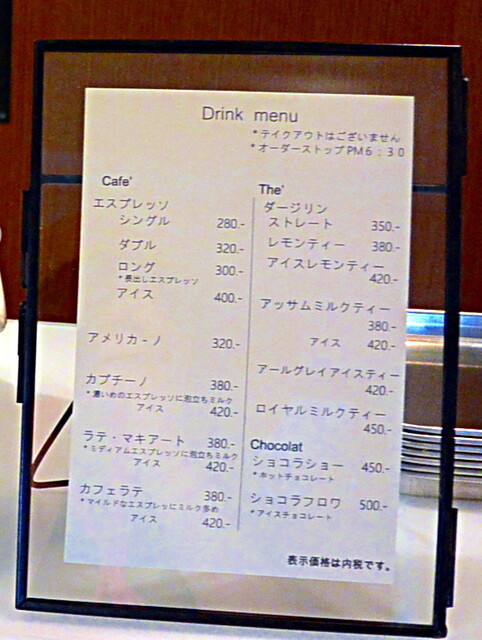 Drink menu
*テイクアウトはございません
*オーダーストップPM6：30
Cafe'
エスプレッソ
シングル 280.-
ダブル 320.-
ロング 300.-
*長出しエスプレッソ
アイス 400.-
アメリカ-ノ 320.-
カプチーノ 380.-
*濃いめのエスプレッソに泡立ちミルク
アイス 420.-
ラテ・マキアート 380.-
*ミディアムエスプレッソに泡立ちミルク
アイス 420.-
カフェラテ 380.-
*マイルドなエスプレッにミルク多め
アイス 420.-
The'
ダージリン
ストレート 350.-
レモンティー 380.-
アイスレモンティー
420.-
アッサムミルクティー
380.-
アイス 420.-
アールグレイアイスティー
420.-
ロイヤルミルクティー
450.-
Chocolat
ショコラショー 450.-
*ホットチョコレート
ショコラフロワ 500.-
*アイスチョコレート
表示価格は内税です。